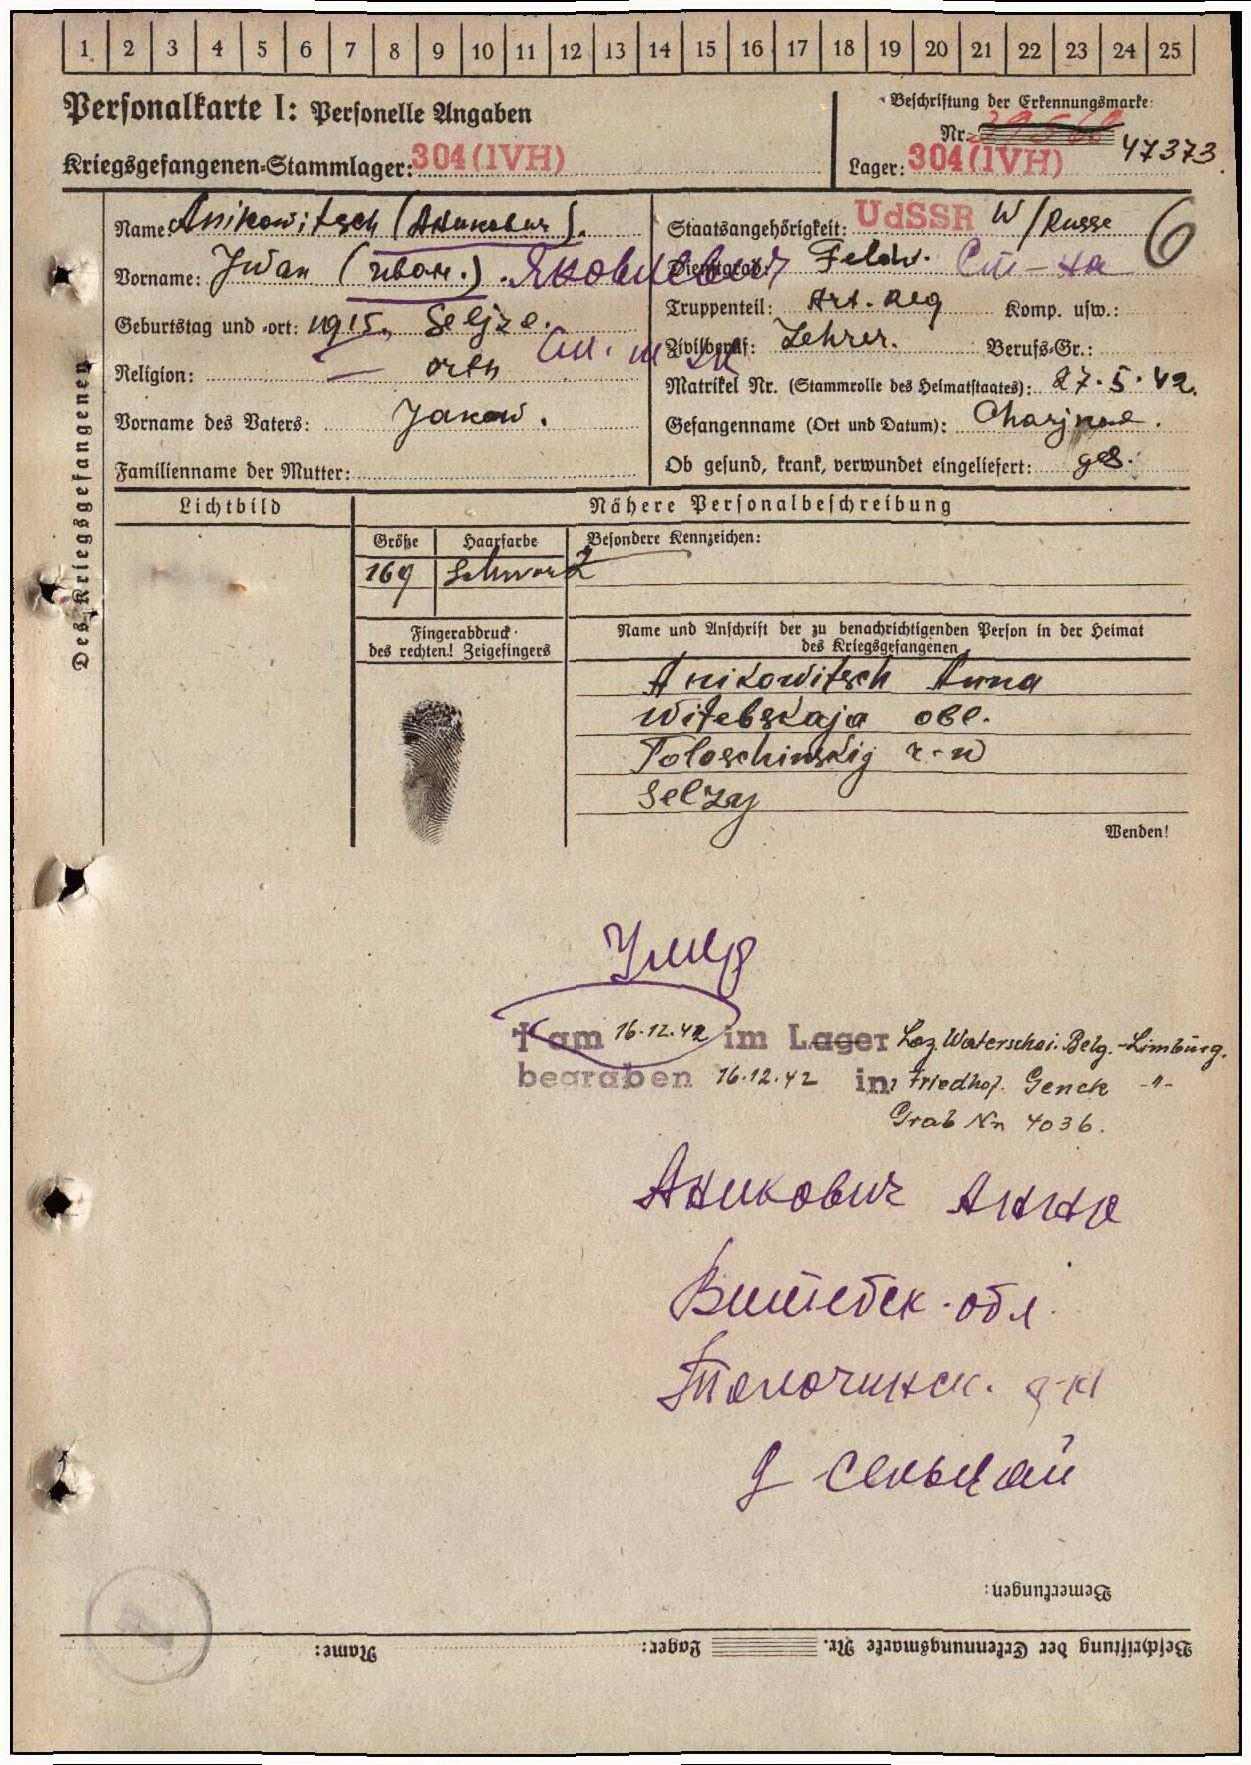 1 2 3 4 5 6 7 8 9 10 11 12 13 14 15 16 17 18 19 20 21 22 23 24 25
Personalkarte I: Personelle Angaben
Kriegsgefangenen-Stammlager: 304 (IVH)
Beschriftung der Erkennungsmarke:
Nr. 47373
Lager: 304 (IVH)
Des Kriegsgefangenen
Name: Anikowitsch (Аникович).
Vorname: Jwan (иван.). Яковлевич
Geburtstag und -ort: 1915. Seljze.
Religion: orth
Vorname des Vaters: Jakow.
Familienname der Mutter:
Staatsangehörigkeit: UdSSR W/Russe 6
Dienstgrad: Feldw. Ст-на
Truppenteil: Art. Reg Komp. usw.:
Zivilberuf: Lehrer. Berufs-Gr.:
Matrikel Nr. (Stammrolle des Heimatstaates): 27.5.42.
Gefangenname (Ort und Datum):
Ob gesund, krank, verwundet eingeliefert: ges.
Lichtbild
Nähere Personalbeschreibung
Größe Haarfarbe Besondere Kennzeichen:
169 Schwarz
Fingerabdruck
des rechten! Zeigefingers
Name und Anschrift der zu benachrichtigenden Person in der Heimat
des Kriegsgefangenen
Anikowitsch Anna
Witebskaja obl.
Toloschinskij r-n
Selzaj
Wenden!
Умер
† am 16.12.42 im Lager Laz. Waterschei. Belg.-Limburg.
begraben 16.12.42 in: Friedhof. Genck -"-
Grab Nr. 4036.
Аникович Анна
Витебск. обл.
Толочинск. р-н
д Сельцай
Bemerkungen:
Beschriftung der Erkennungsmarke Nr. Lager: Name: